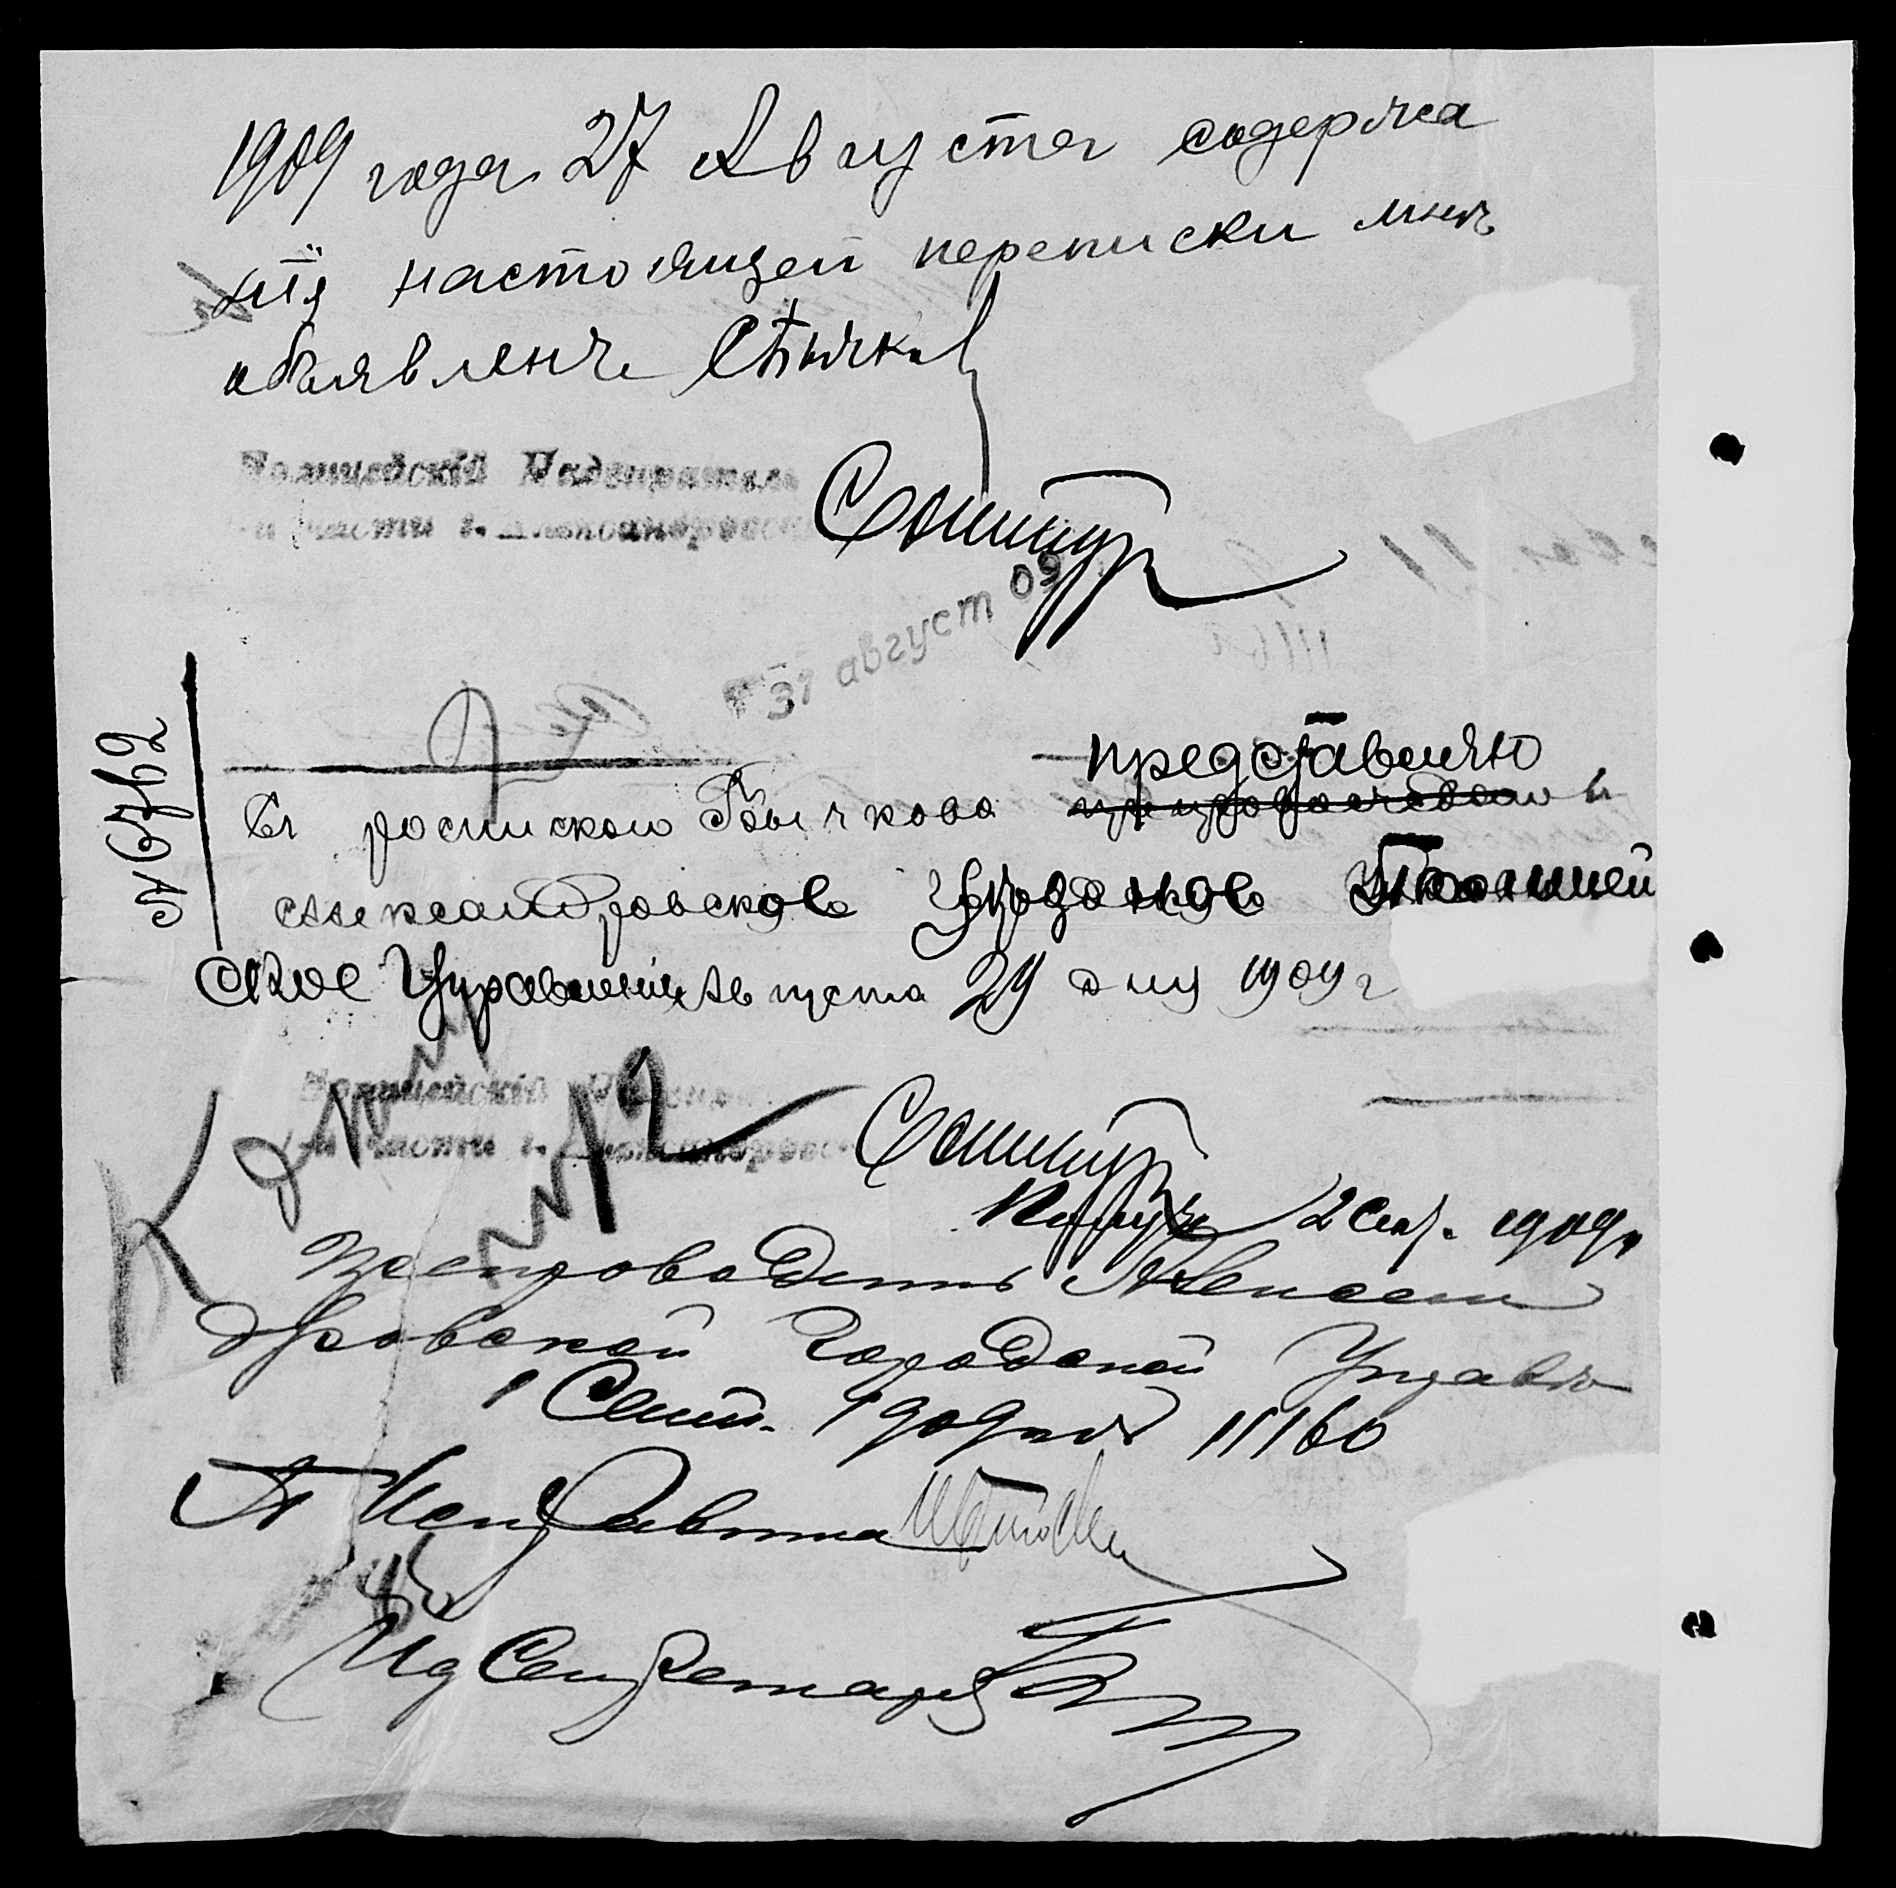 1909 года 27 Августа содержа
нiя настоящей переписки мнѣ
объявлена Бычков
Полицейскiй Надзиратель
части г. Александровска
31 август 09
№ 6762
представляю
Съ роспиской Бычкова препровождаю въ
Александровское Уѣздное Полицей
ское Управленiе Августа 29 дня 1909 г
Полицейскiй
части г. Александровска
К д № 12
Получ 2 Сент. 1909 г.
Препроводить Алексан
дровской Городской Управѣ
1 Сент. 1909 г. № 11160
П Исправника
Ид Секретаря